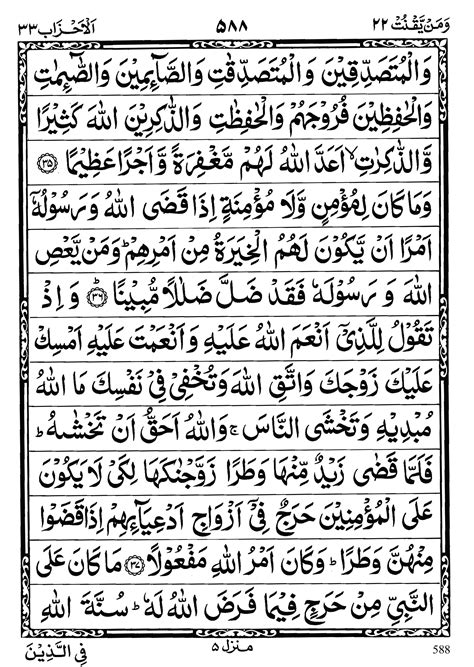 وَمَنْ يَّقْنُتْ ٢٢ ٥٨٨ اَلْاَحْزَاب ٣٣
وَالْمُتَصَدِّقِيْنَ وَالْمُتَصَدِّقٰتِ وَالصَّآىِٕمِيْنَ وَالصّٰٓىِٕمٰتِ
وَالْحٰفِظِيْنَ فُرُوْجَهُمْ وَالْحٰفِظٰتِ وَالذّٰكِرِيْنَ اللّٰهَ كَثِيْرًا
وَّالذّٰكِرٰتِ ۙ اَعَدَّ اللّٰهُ لَهُمْ مَّغْفِرَةً وَّاَجْرًا عَظِيْمًا ﴿٣٥﴾
وَمَا كَانَ لِمُؤْمِنٍ وَّلَا مُؤْمِنَةٍ اِذَا قَضَى اللّٰهُ وَرَسُوْلُهٗٓ
اَمْرًا اَنْ يَّكُوْنَ لَهُمُ الْخِيَرَةُ مِنْ اَمْرِهِمْ ؕ وَمَنْ يَّعْصِ
اللّٰهَ وَرَسُوْلَهٗ فَقَدْ ضَلَّ ضَلٰلًا مُّبِيْنًا ﴿٣٦﴾ؕ وَاِذْ
تَقُوْلُ لِلَّذِيْٓ اَنْعَمَ اللّٰهُ عَلَيْهِ وَاَنْعَمْتَ عَلَيْهِ اَمْسِكْ
عَلَيْكَ زَوْجَكَ وَاتَّقِ اللّٰهَ وَتُخْفِيْ فِيْ نَفْسِكَ مَا اللّٰهُ
مُبْدِيْهِ وَتَخْشَى النَّاسَ ۚ وَاللّٰهُ اَحَقُّ اَنْ تَخْشٰىهُ ؕ
فَلَمَّا قَضٰى زَيْدٌ مِّنْهَا وَطَرًا زَوَّجْنٰكَهَا لِكَيْ لَا يَكُوْنَ
عَلَى الْمُؤْمِنِيْنَ حَرَجٌ فِيْٓ اَزْوَاجِ اَدْعِيَآىِٕهِمْ اِذَا قَضَوْا
مِنْهُنَّ وَطَرًا ؕ وَكَانَ اَمْرُ اللّٰهِ مَفْعُوْلًا ﴿٣٧﴾ مَا كَانَ عَلَى
النَّبِيِّ مِنْ حَرَجٍ فِيْمَا فَرَضَ اللّٰهُ لَهٗ ؕ سُنَّةَ اللّٰهِ
588 منزل ٥ فِي الَّذِيْنَ